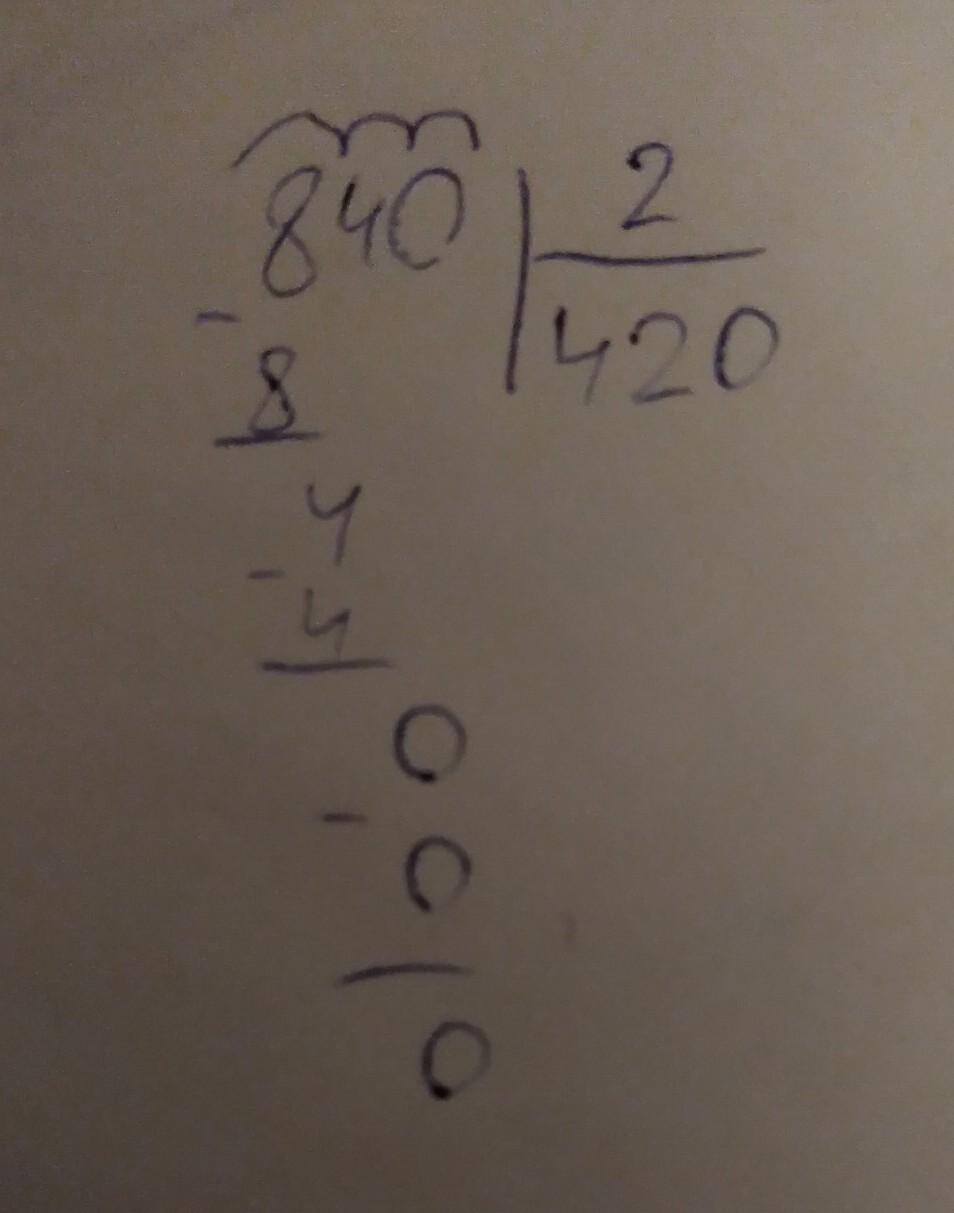 840 | 2
- 420
8
4
-
4
0
-
0
0